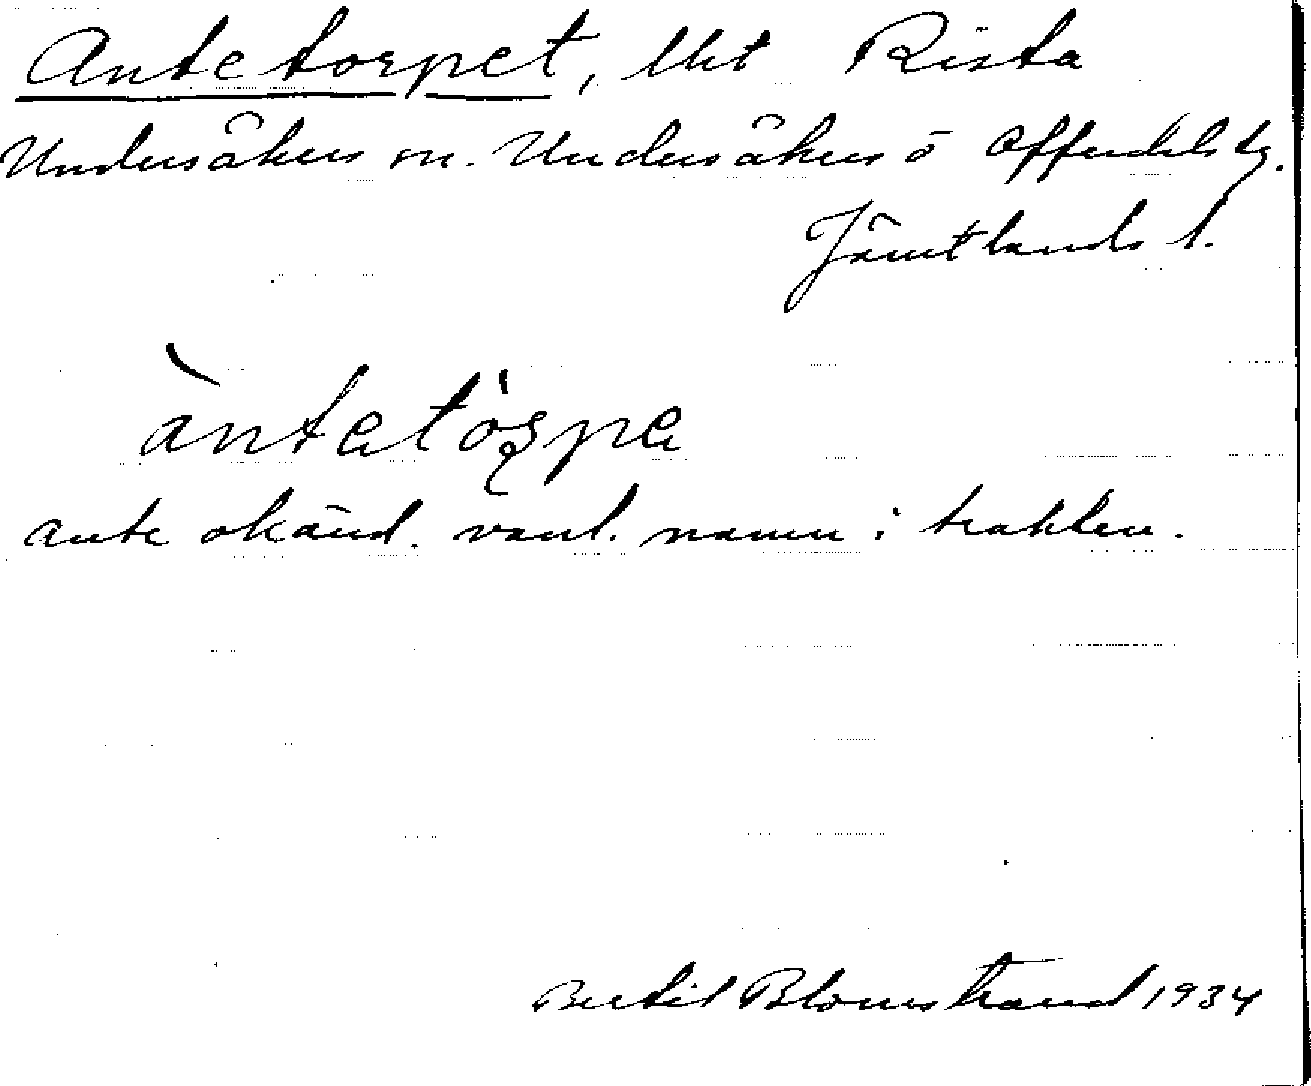 Antetorpet, lht Rista
Undersåkers sn. Undersåkers o Offerdals tg.
Jämtlands l.
àntatórpa
ante okänd. vanl. namn i trakten.
Bertil Blomstrand 1934